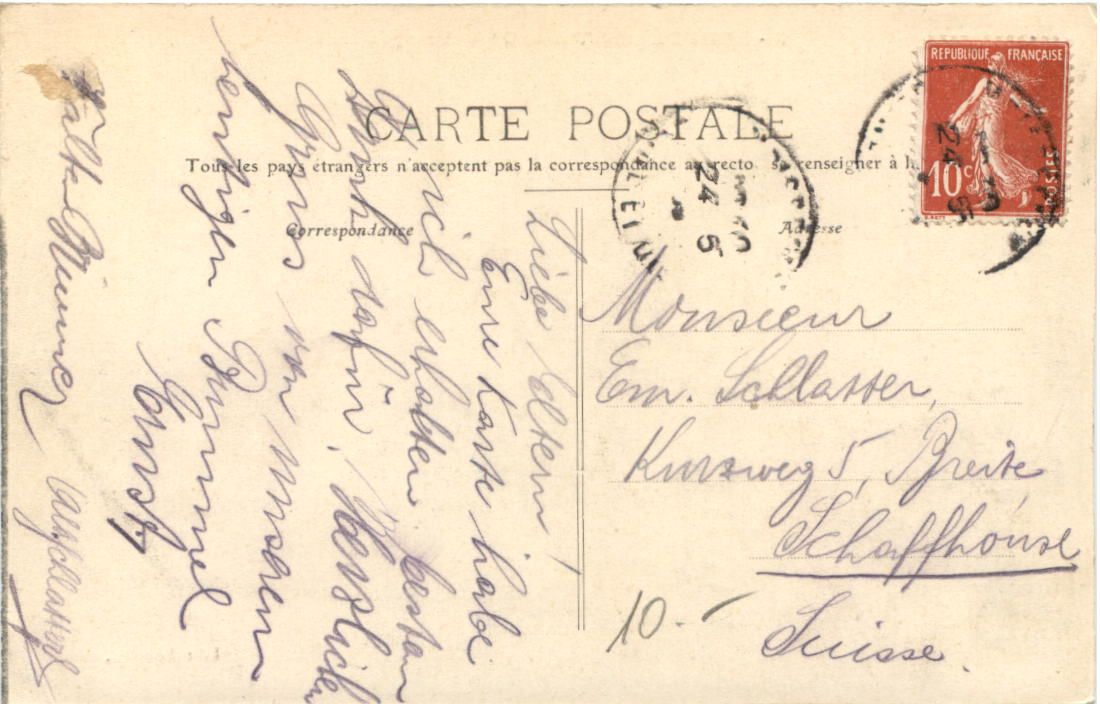 CARTE POSTALE
Tous les pays étrangers n'acceptent pas la correspondance au recto se renseigner à la
Correspondance
Adresse
REPUBLIQUE FRANÇAISE
10c
POSTES
24 5
24 5
Monsieur
Em. Schlatter,
Kurzweg 5, Breite
Schaffhouse
Suisse.
10.-
Liebe Eltern!
Eure Karte habe
ich erhalten besten
Dank dafür. Herzlichen
Gruss von unserem
Bummel
Ernst